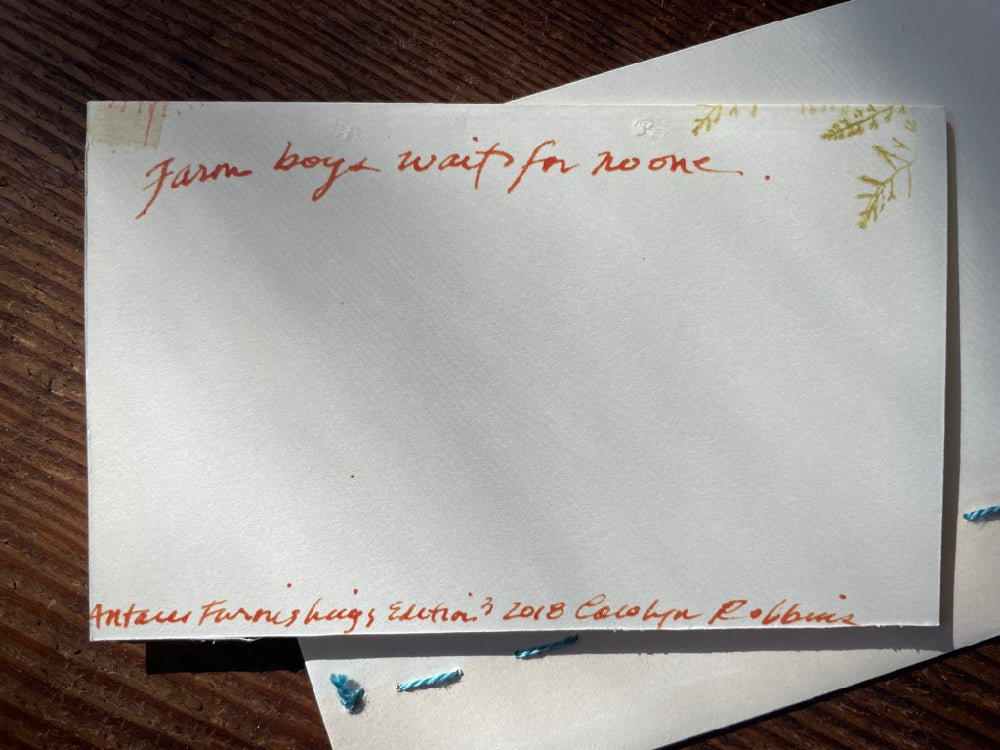 Farm boys wait for no one .
Furnishings Edition 3 2018 Carolyn Robbins